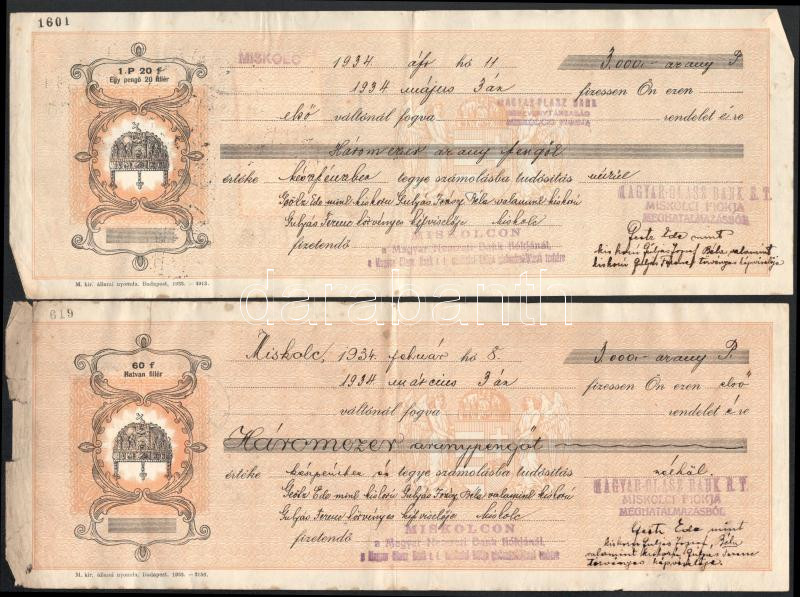 1601
MISKOLC 1934 ápr hó 11 3,000.- arany P
1.P 20 f
Egy pengő 20 fillér
1934 május 3án fizessen Ön ezen
első váltónál fogva MAGYAR-OLASZ BANK rendelet ére
RÉSZVÉNYTÁRSASÁG
MISKOLCI FIÓKJA
Háromezer arany pengőt
értéke készpénzben tegye számolásba tudósítás nélkül
Ede mint kiskorú Gulyás Béla valamint kiskorú
MAGYAR-OLASZ BANK R.T.
MISKOLCI FIÓKJA
MEGHATALMAZÁSBÓL
Gulyás Ferenc törvényes képviselője Miskolc
fizetendő MISKOLCON
a Magyar Nemzeti Bank fiókjánál,
Ede mint
kiskorú Gulyás József Béla valamint
kiskorú Gulyás Ferenc törvényes képviselője
M. kir. állami nyomda. Budapest, 1933. - 4913.
darabanth
619
Miskolc, 1934. február hó 8. 3,000.- arany P.
60 f
Hatvan fillér
1934 március 3án fizessen Ön ezen első
váltónál fogva rendelet ére
Háromezer aranypengőt
értéke készpénzben és tegye számolásba tudósítás nélkül.
Ede mint kiskorú Gulyás Béla valamint kiskorú
MAGYAR-OLASZ BANK R.T.
MISKOLCI FIÓKJA
MEGHATALMAZÁSBÓL
Gulyás Ferenc törvényes képviselője Miskolc
fizetendő MISKOLCON
a Magyar Nemzeti Bank fiókjánál,
Ede mint
kiskorú Gulyás József, Béla
valamint kiskorú Gulyás Ferenc
törvényes képviselője.
M. kir. állami nyomda. Budapest, 1933. -